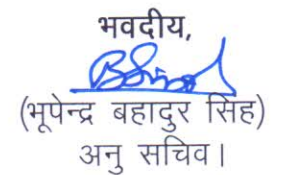 भवदीय,
(भूपेन्द्र बहादुर सिंह)
अनु सचिव।